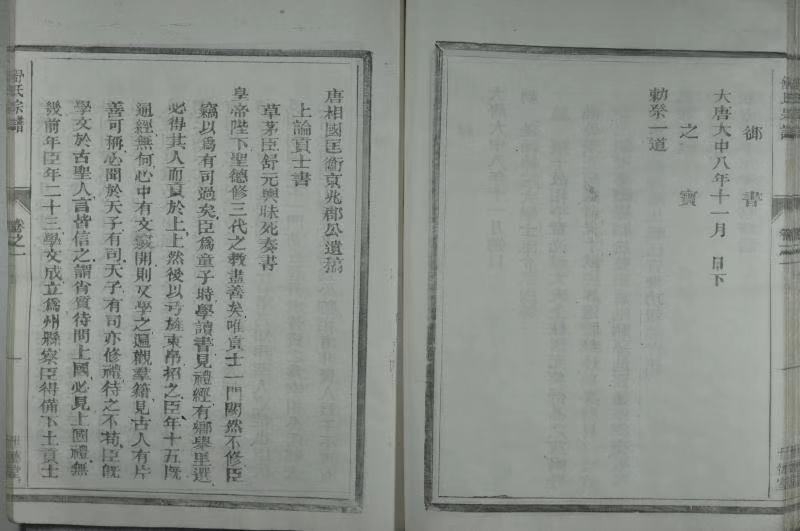 御書
之寶
大唐大中八年十一月 日下
勅祭一道
唐相國匡衛京兆郡公遺稿
上論貢士書
草茅臣舒元輿昧死奏書
皇帝陛下聖德修三代之教盡善矣唯貢士一門闕然不修臣
竊以爲有司過矣臣爲童子時學讀書見禮經有鄉舉里選
必得其人而貢於上上然後以弓旌束帛招之臣年十五旣
通經無何心中有文竅開則又學之遍觀羣籍見古人有片
善可稱必聞於天子有司天子有司亦修禮待之不苟臣旣
學文於古聖人言皆信之謂肖質待問上國必見上國禮無
幾前年臣年二十三學文成立爲州縣察臣得備下土貢士
舒氏宗譜
卷之一